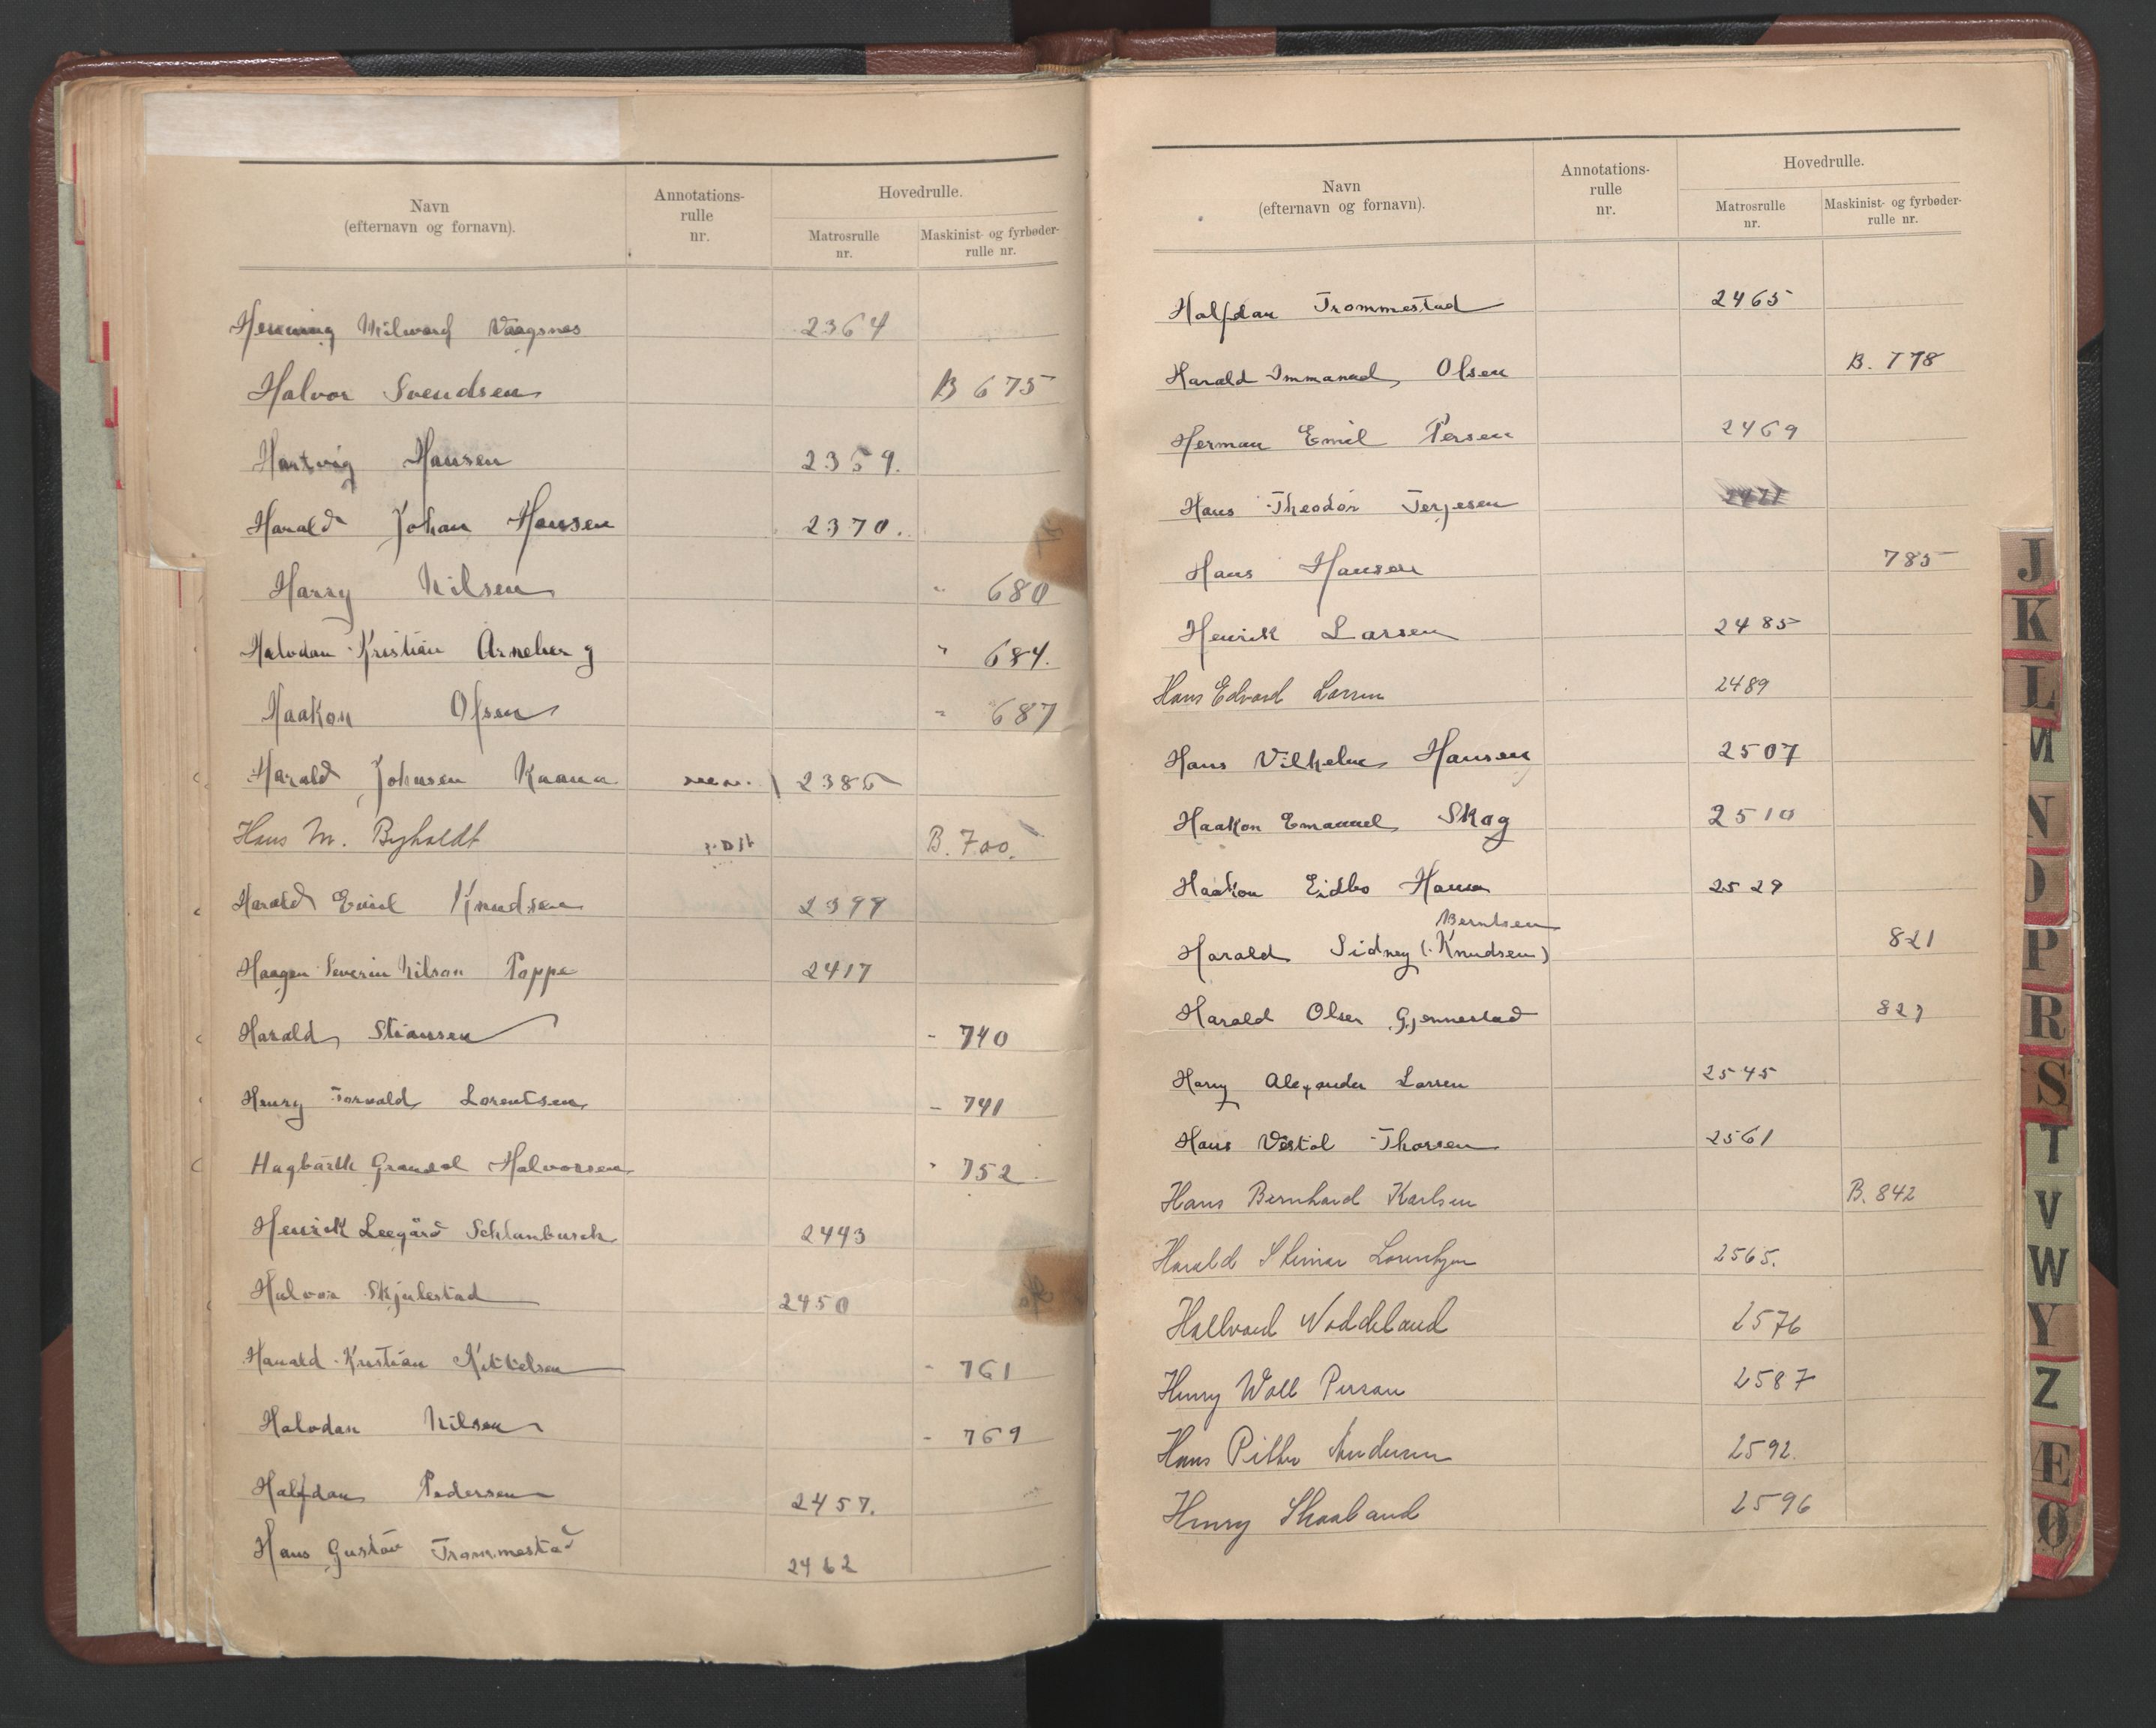 Navn
(efternavn og fornavn).
Annotations-
rulle
nr.
Hovedrulle.
Matrosrulle
nr.
Maskinist- og fyrbøder-
rulle nr.
Henning Milward Vaagsnes 2364
Halvor Svendsen B 675
Hartvig Hansen 2359.
Harald Johan Hansen 2370.
Harry Nilsen " 680
Halvdan Kristian Arneberg " 684.
Haakon Olsen " 687
Harald Johnsen Kaana 2385
Hans M. Byholdt B. 700.
Harald Emil Knudsen 2399
Haagen Severin Nilsen Poppe 2417
Harald Stiansen - 740
Henry Torvald Lorentsen - 741
Hagbarth Grandal Halvorsen " 752
Henrik Leegård Schlanbusch 2443
Halvor Skjulestad 2450
Harald Kristian Kittelsen - 761
Halvdan Nilsen - 769
Halfdan Pedersen 2457.
Hans Gustav Trommestad 2462
Navn
(efternavn og fornavn).
Annotations-
rulle
nr.
Hovedrulle.
Matrosrulle
nr.
Maskinist- og fyrbøder-
rulle nr.
Halfdan Trommestad 2465
Harald Immanuel Olsen B. 778
Herman Emil Persen 2469
Hans Theodor Terjesen 2471
Hans Hansen 785
Henrik Larsen 2485
Hans Edvard Larsen 2489
Hans Vilhelm Hansen 2507
Haakon Emanuel Skog 2510
Haakon Eidbo Hansen 2529
Berntsen
Harald Sidney (Knudsen) 821
Harald Olsen Gjennestad 827
Harry Alexander Larsen 2545
Hans Vistol Thorsen 2561
Hans Bernhard Karlsen B. 842
Harald Steinar Lorentzen 2565.
Hallvard Noddeland 2576
Henry Woll Persson 2587
Hans Petter Andersen 2592.
Henry Skaaland 2596
J
K
L
M
N
O
P
R
S
T
V
W
Y
Z
Æ
Ø